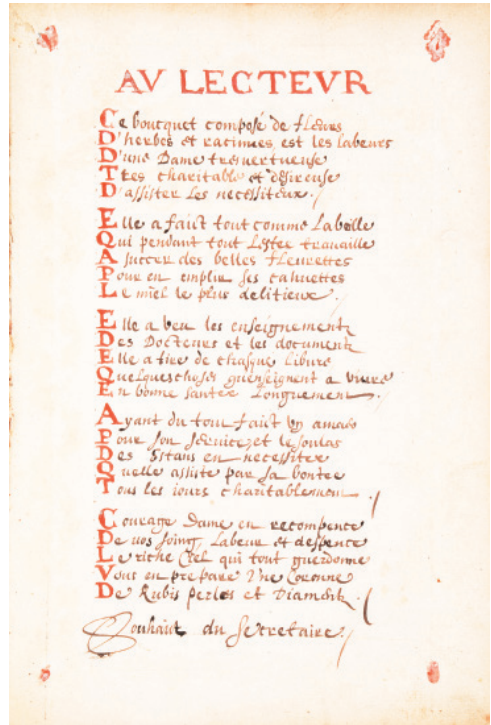 AV LECTEVR
Ce boucquet composé de fleurs
D'herbes et racinnes, est les labeurs
D'une Dame tresvertueuse
Tres charitable et désireuse
D'assister les necessiteux.
Elle a faict tout comme Labeille
Qui pendant tout Lestee travaille
A succer des belles fleurettes
Pour en emplir ses cahuettes
Le miel le plus delitieux.
Elle a veu les enseignementz
Des Docteurs et les documentz
Elle a tire de chasque livure
Quelques choses quenseignent a vivre
En bonne santee Longuement.
Ayant du tout faict un amas
Pour son service, et le soulas
Des Estans en necessitee
Quelle assiste par sa bontee
Tous les iours charitablement.
Courage Dame en recompence
De vos soing, Labeur et despence
Le riche Ciel qui tout guerdonne
Vous en prepare Une Coronne
De Rubis Perles et Diamentz.
Souhait du Secretaire.